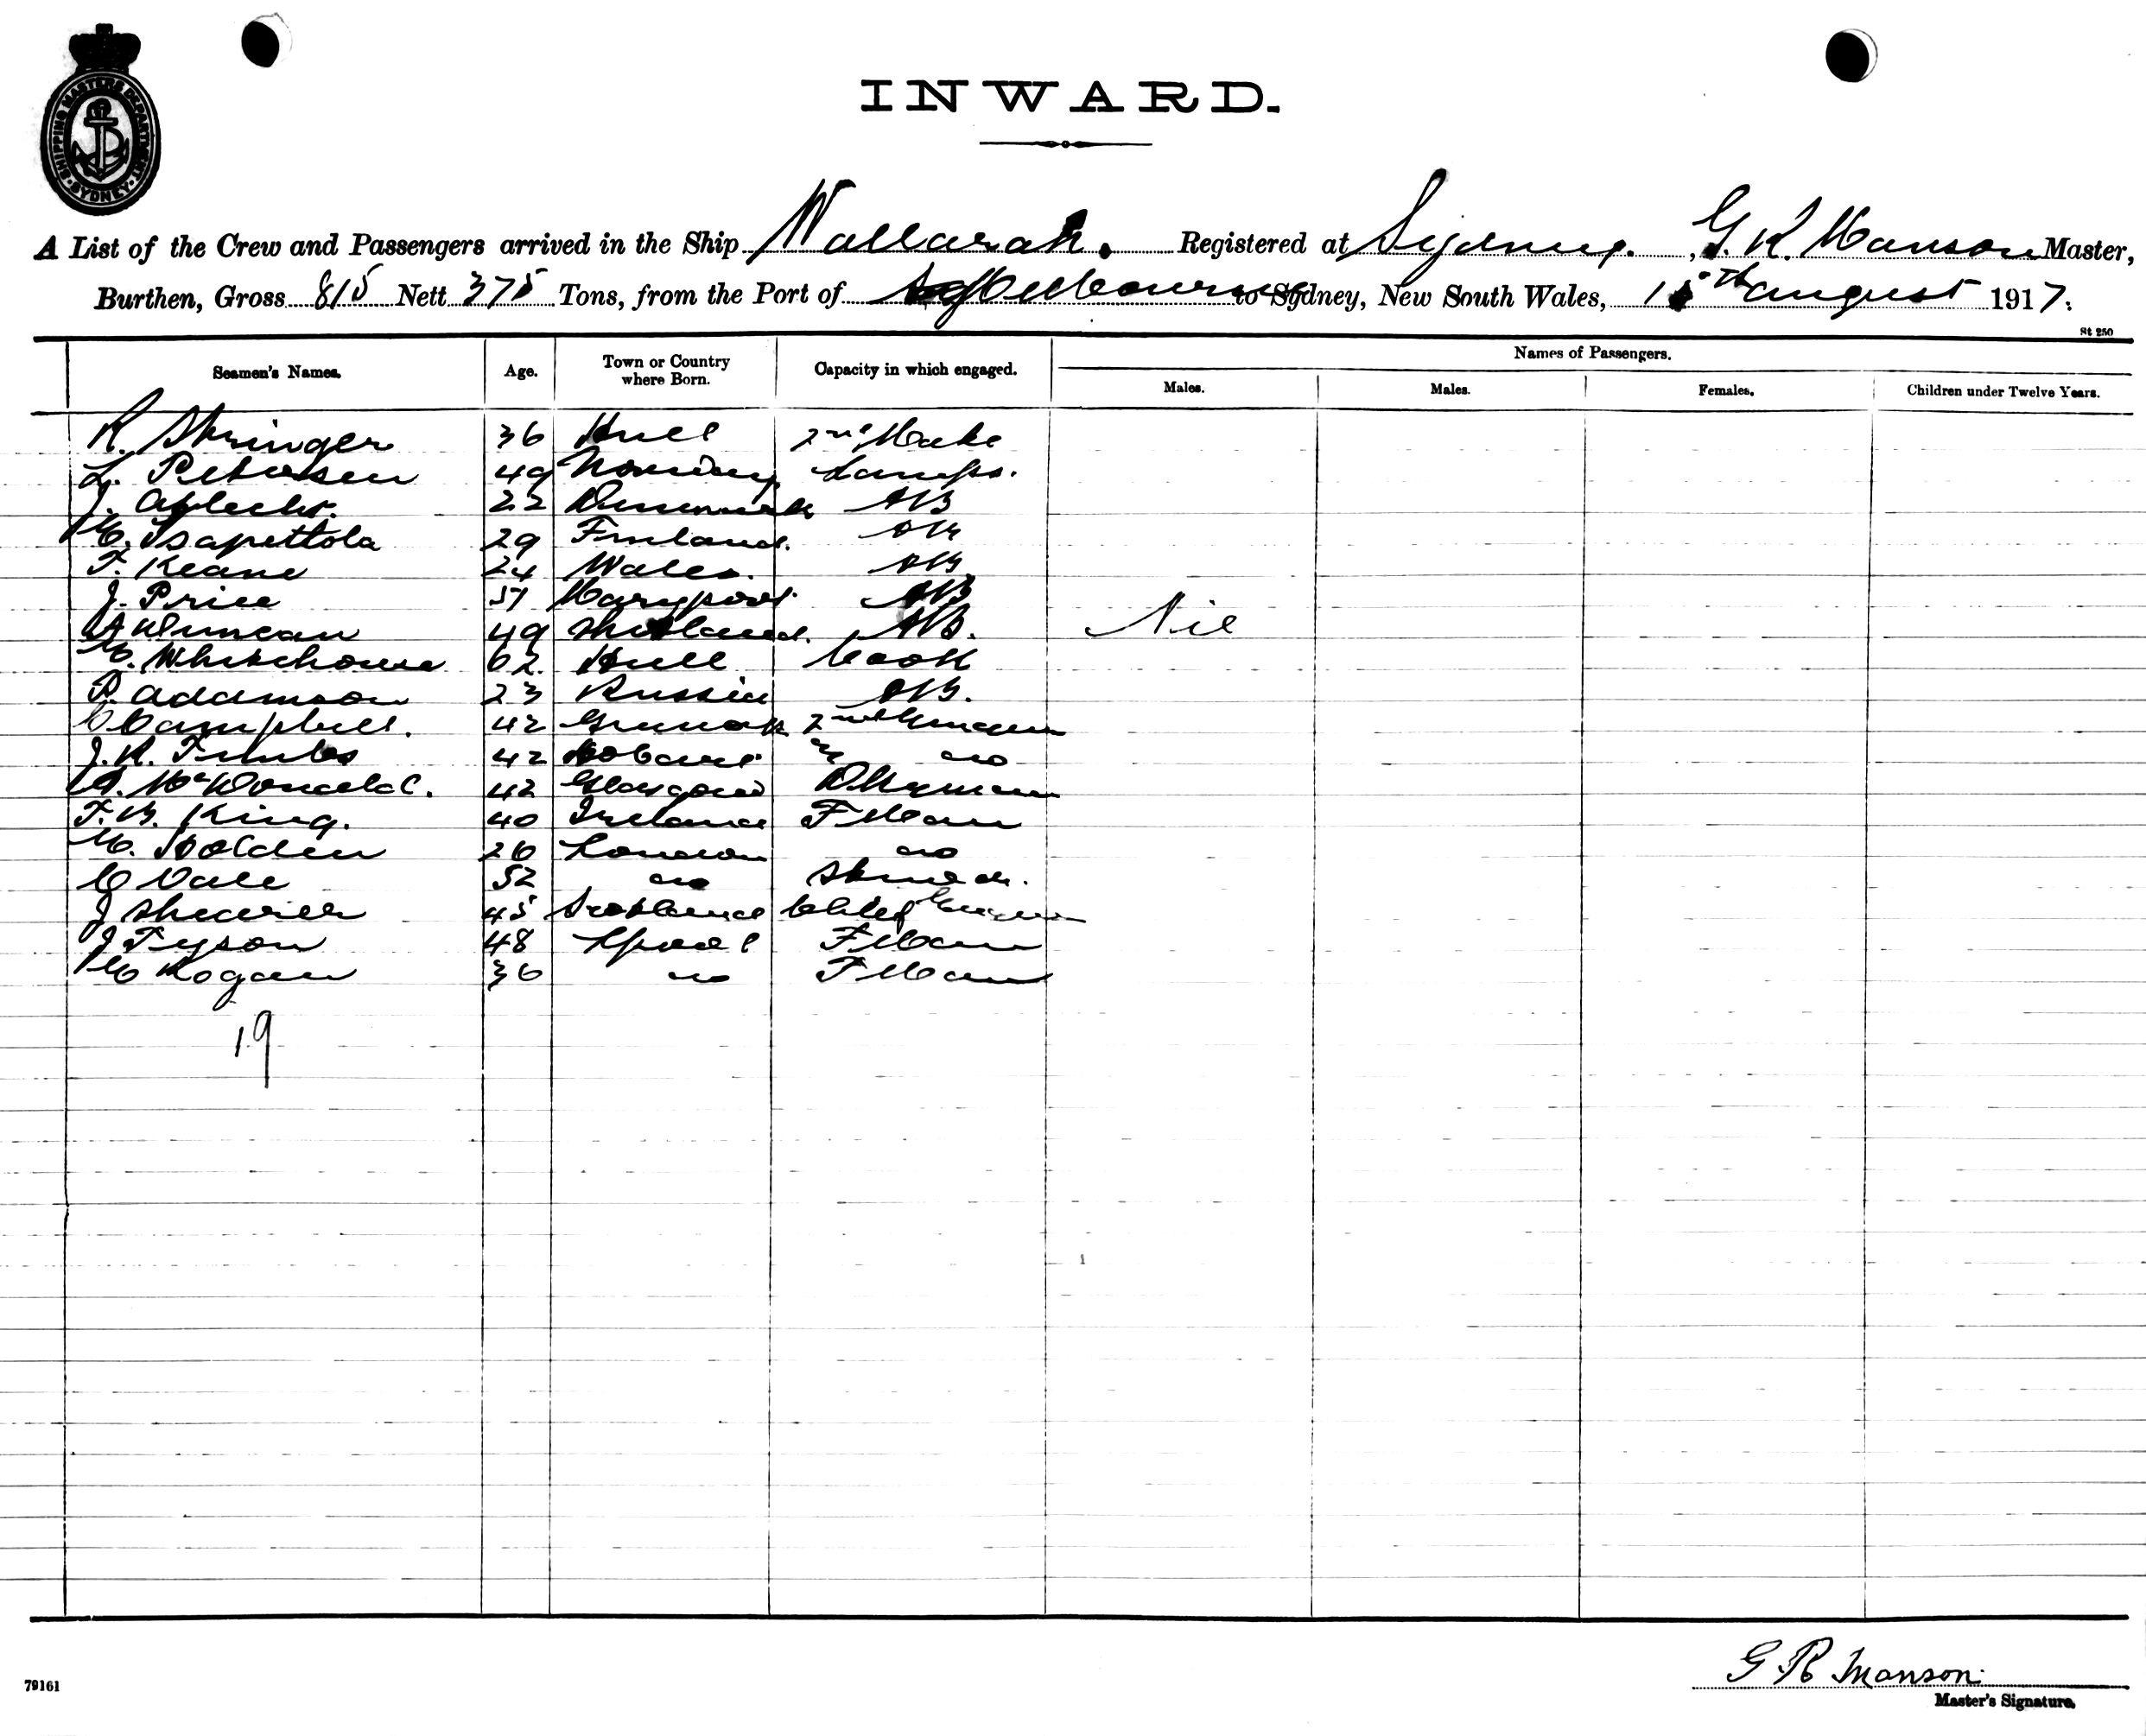 SHIPPING MASTERS DEPARTMENT
SYDNEY
INWARD.
A List of the Crew and Passengers arrived in the Ship Wallarah. Registered at Sydney. , G. R. Manson Master,
Burthen, Gross 815 Nett 375 Tons, from the Port of Melbourne to Sydney, New South Wales, 15th august 1917.
St 250
Seamen's Names. Age. Town or Country where Born. Capacity in which engaged. Names of Passengers.
Males. Males. Females. Children under Twelve Years.
R. Stringer 36 Hull 2nd Mate
L. Petersen 49 Norway Lamps.
J. 22 Denmark AB
Isapettola 29 Finland. AB
F. Keane 24 Wales. AB
J. Price 51 Maryport AB
A Duncan 49 Shetland. AB. Nil
Whitehouse 62 Hull Cook
P. adamson 23 Russia AB.
C Campbell. 42 2nd
J. R. 42 Hobart 3 do
A. McDonald. 42 Glasgow
F. B. King. 40 Ireland F Man
Holden 26 London do
C Vale 52 do
J Shearer 45 Scotland Chief
J Tyson 48 Lpool F Man
Hogan 36 do F Man
19
G R Manson
79161
Master's Signature.